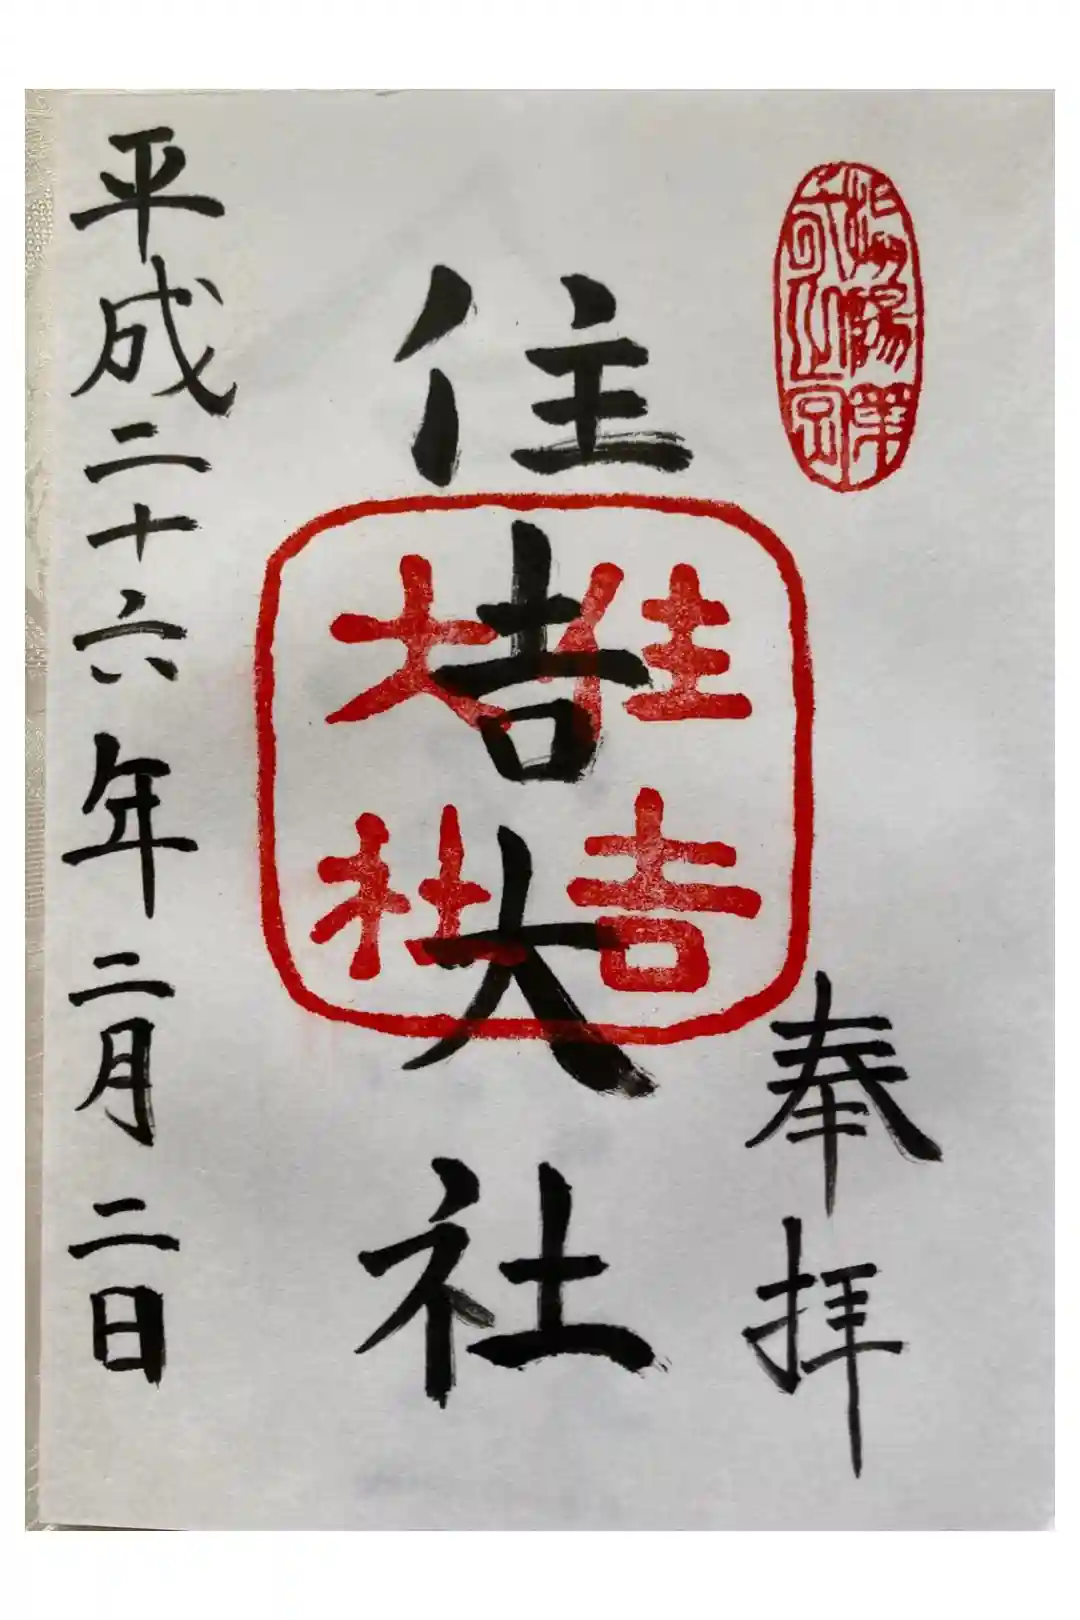 奉拝
住吉大社
住吉
大社
平成二十六年二月二日